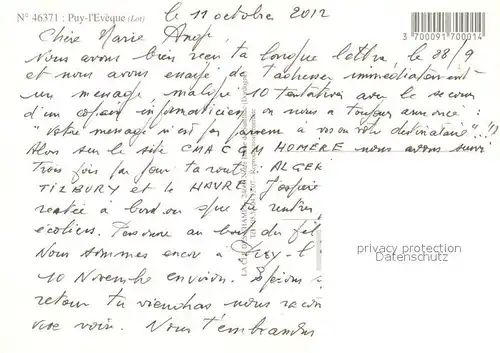 N° 46371 : Puy-l'Evèque (Lot)
le 11 octobre 2012
3 700091 700014
Chère Marie Ange,
Nous avons bien reçu ta longue lettre, le 28/9
et nous avons essayé de t'adresser immédiatement
un message, malgré 10 tentatives avec le secours
d'un copain informaticien on nous a toujours annoncé :
"votre message n'est pas parvenu à son destinataire" !!)
Alors sur le site CMA CGM HOMÈRE nous avons suivi
Trois fois par jour ta route : ALGER
TILBURY et le HAVRE J'espère
rentrée à bord ou que ta rentrée
écoliers. Personne au bout du fil
Nous sommes encore à Puy-l
10 Novembre environ. Espérons
retour tu viendras nous
vive voix. Nous t'embrassons
privacy protection